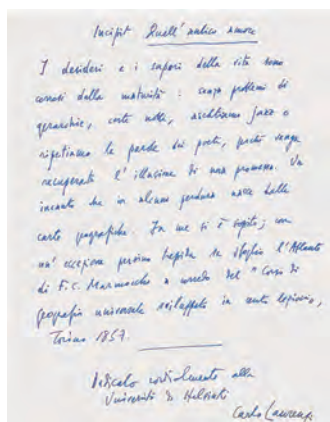 Incipit Quell'antico amore
I desideri e i sapori della vita sono
della maturità: senza problemi di
gerarchie, certe notti, ascoltiamo jazz o
ripetiamo le parole dei poeti, perché venga
recuperata l'illusione di una promessa. Un
incanto che in alcuni perdura nasce dalle
carte geografiche. In me si è sopito; con
un'eccezione persino tiepida se sfoglio l'Atlante
di F.C. Marmocchi a corredo del "Corso di
geografia universale sviluppato in cento lezioni",
Torino 1857.
Dedicato cordialmente alla
Università di Helsinki
Carlo